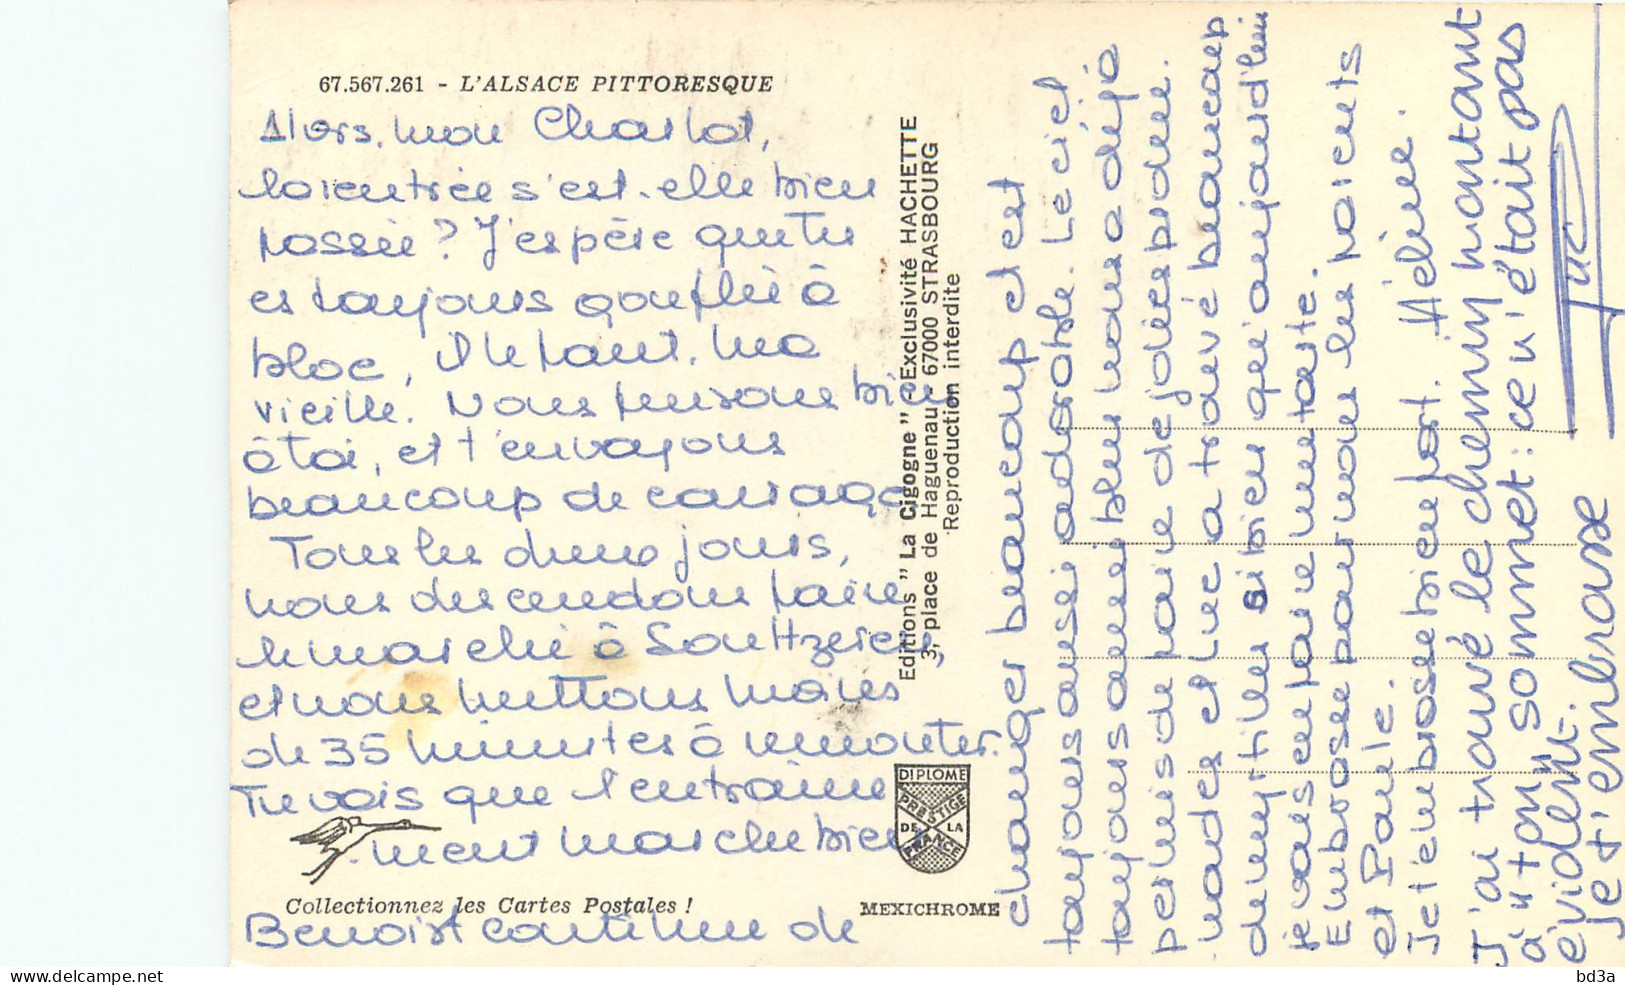 67.567.261 - L'ALSACE PITTORESQUE
Alors, mon Charlot,
la rentrée s'est-elle bien
passée ? J'espère que tu
es toujours gonflé à
bloc, Il le faut, ma
vieille. Nous pensons bien
à toi, et t'envoyons
beaucoup de courage
Tous les deux jours,
nous descendons faire
le marché à Soultzeren,
et nous mettons moins
de 35 minutes à remonter.
Tu vois que l'entraine
-ment marche bien
Collectionnez les Cartes Postales !
Benoist continue de
Editions " La Cigogne " - Exclusivité HACHETTE
3, place de Haguenau - 67000 STRASBOURG
Reproduction interdite
DIPLOME
PRESTIGE
DE LA
FRANCE
MEXICHROME
changer beaucoup et est
toujours aussi adorable. Le ciel
toujours aussi bleu nous a déjà
permis de faire de jolies prome.
nades et Luc a trouvé beaucoup
de myrtilles si bien qu'aujourd'hui
je vais en faire une tarte.
Embrasse pour nous les parents
et Paule.
Je t'embrasse bien fort. Hélène.
J'ai trouvé le chemin montant
à "ton" sommet : ce n'était pas
évident.
Je t'embrasse
Luc
bd3a